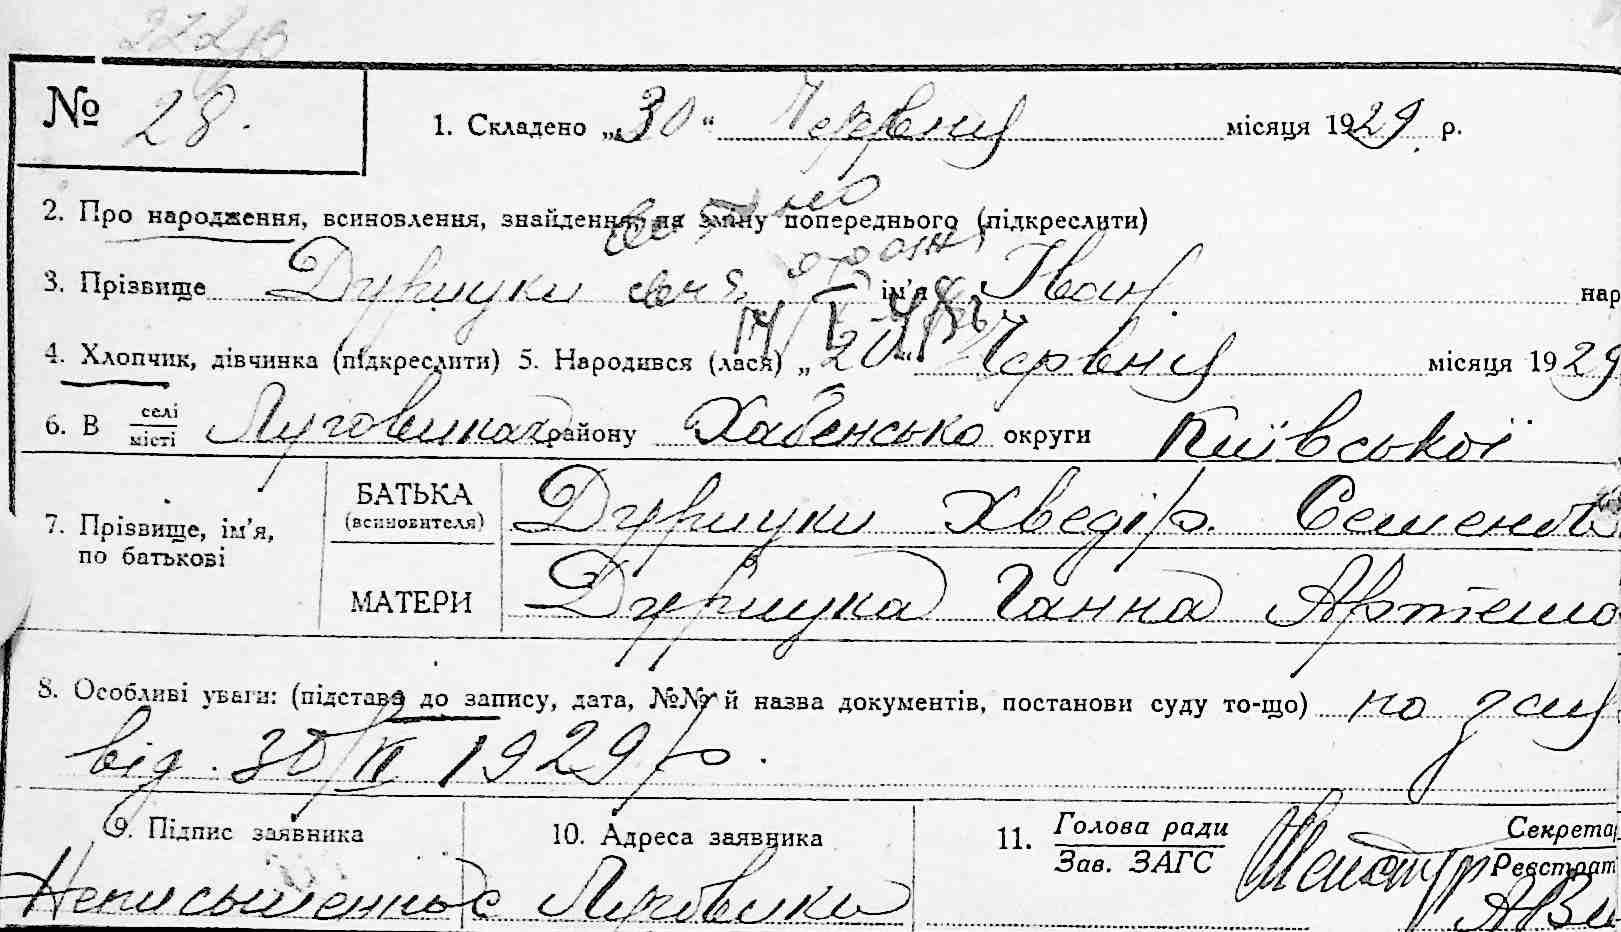 № 28. 1. Складено „30“ Червня місяця 1929 р.
2. Про народження, всиновлення, знайдення, на зміну попереднього (підкреслити)
3. Прізвище ім’я Іван нар
4. Хлопчик, дівчинка (підкреслити) 5. Народився (лася) „20“ Червня місяця 1929
6. В селі місті Луговиках району Хабенсько округи Київської
7. Прізвище, ім’я, по батькові
БАТЬКА (всиновителя) Хведір. Семенов
МАТЕРИ Ганна Артемо
8. Особливі уваги: (підстава до запису, дата, №№ й назва документів, постанови суду то-що) по
від. 30/VI 1929 р.
9. Підпис заявника 10. Адреса заявника 11. Голова ради Зав. ЗАГС Секрета Реєстрат
Неписьменный Луговики